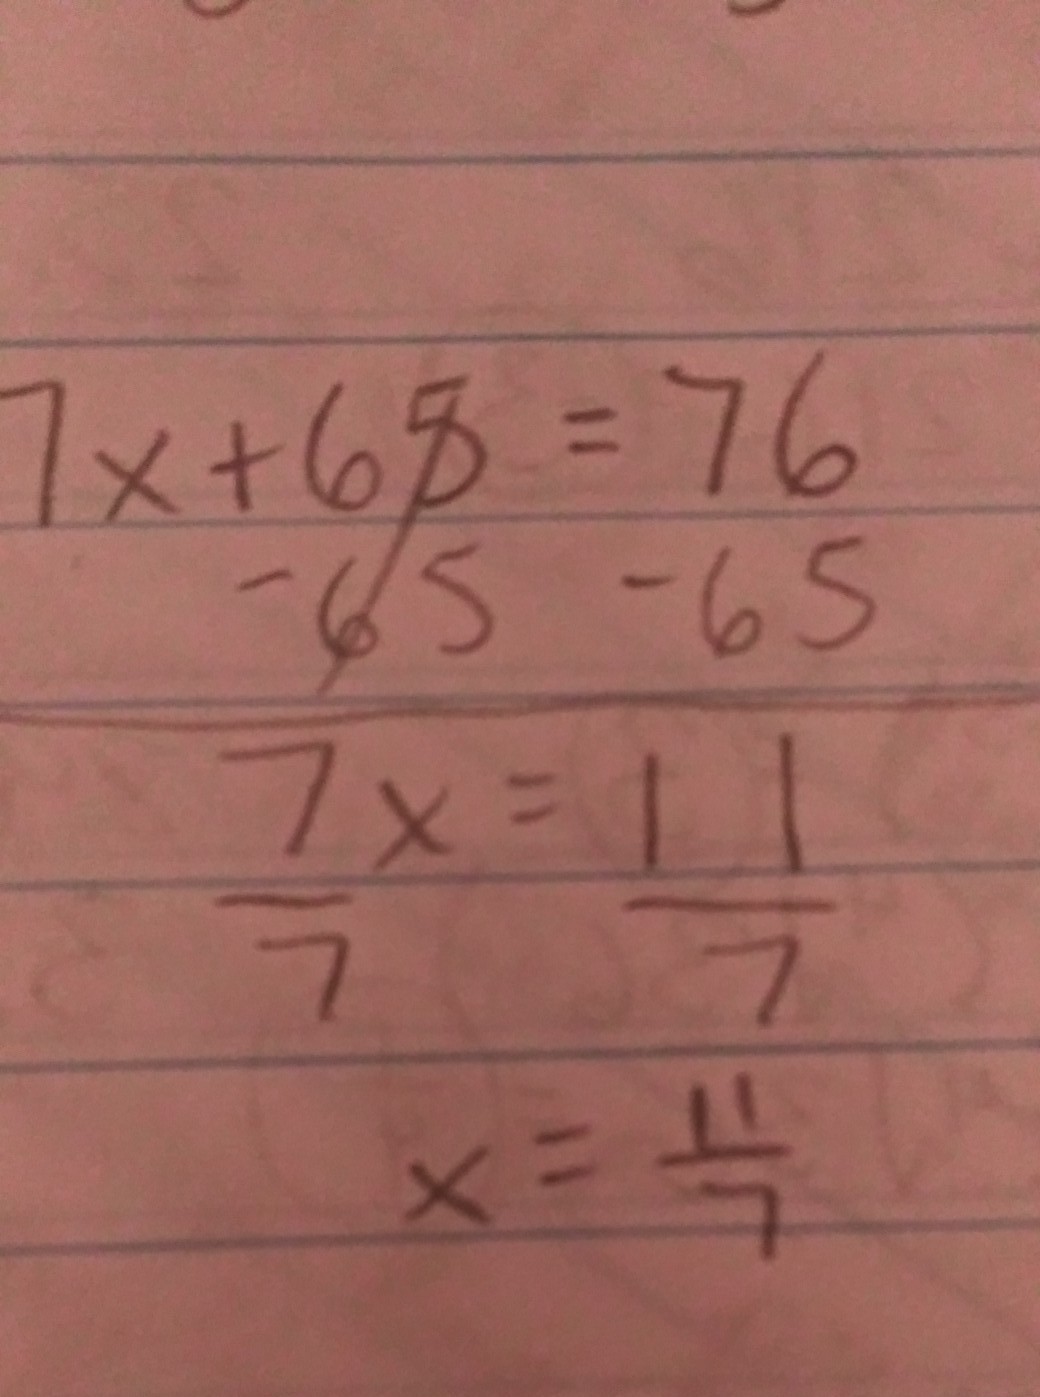 7x+65 = 76
-65 -65
7x = 11
7 7
x = 11/7